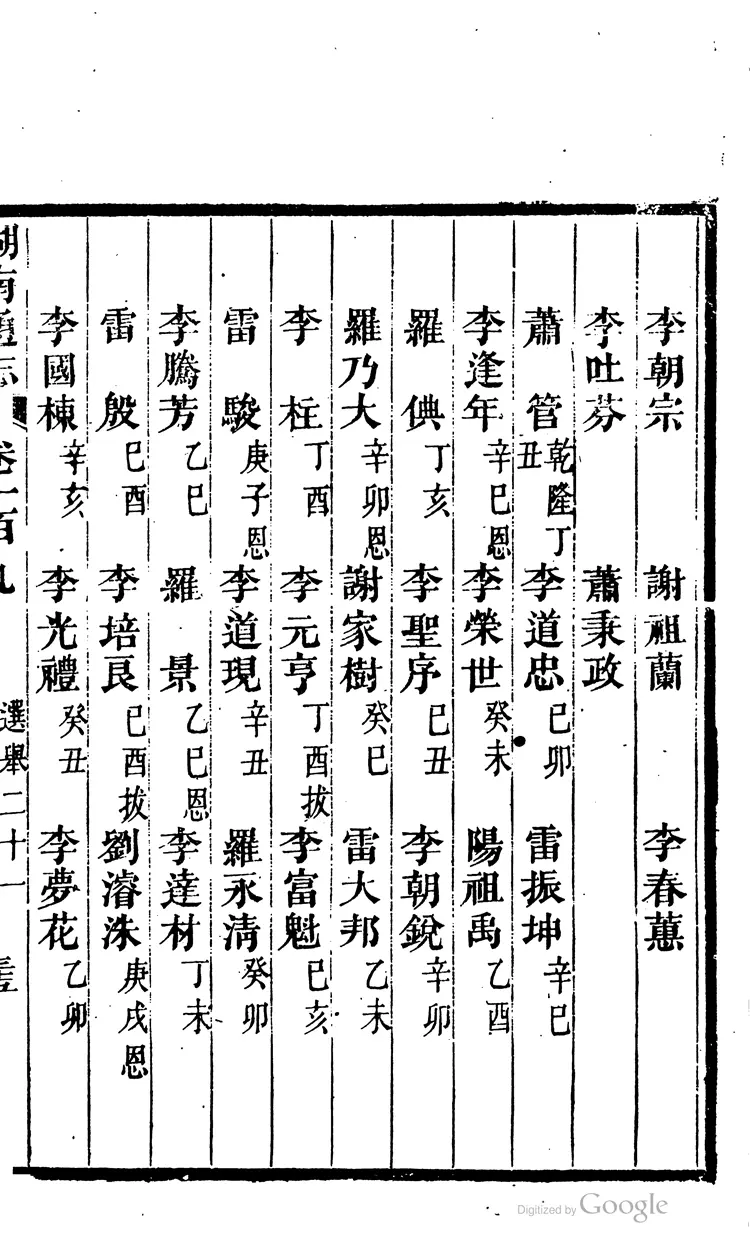 李朝宗 謝祖蘭 李春蕙
李吐芬 蕭秉政
蕭管乾隆丁丑 李道忠己卯 雷振坤辛巳
李逢年辛巳恩 李榮世癸未 陽祖禹乙酉
羅典丁亥 李聖序己丑 李朝銳辛卯
羅乃大辛卯恩 謝家樹癸巳 雷大邦乙未
李柱丁酉 李元亨丁酉拔 李富魁己亥
雷駿庚子恩 李道現辛丑 羅永清癸卯
李騰芳乙巳 羅景乙巳恩 李達材丁未
雷殷己酉 李培良己酉拔 劉濬洙庚戌恩
李國棟辛亥 李光禮癸丑 李夢花乙卯
湖南通志 卷一百九 選舉二十一
Digitized by Google